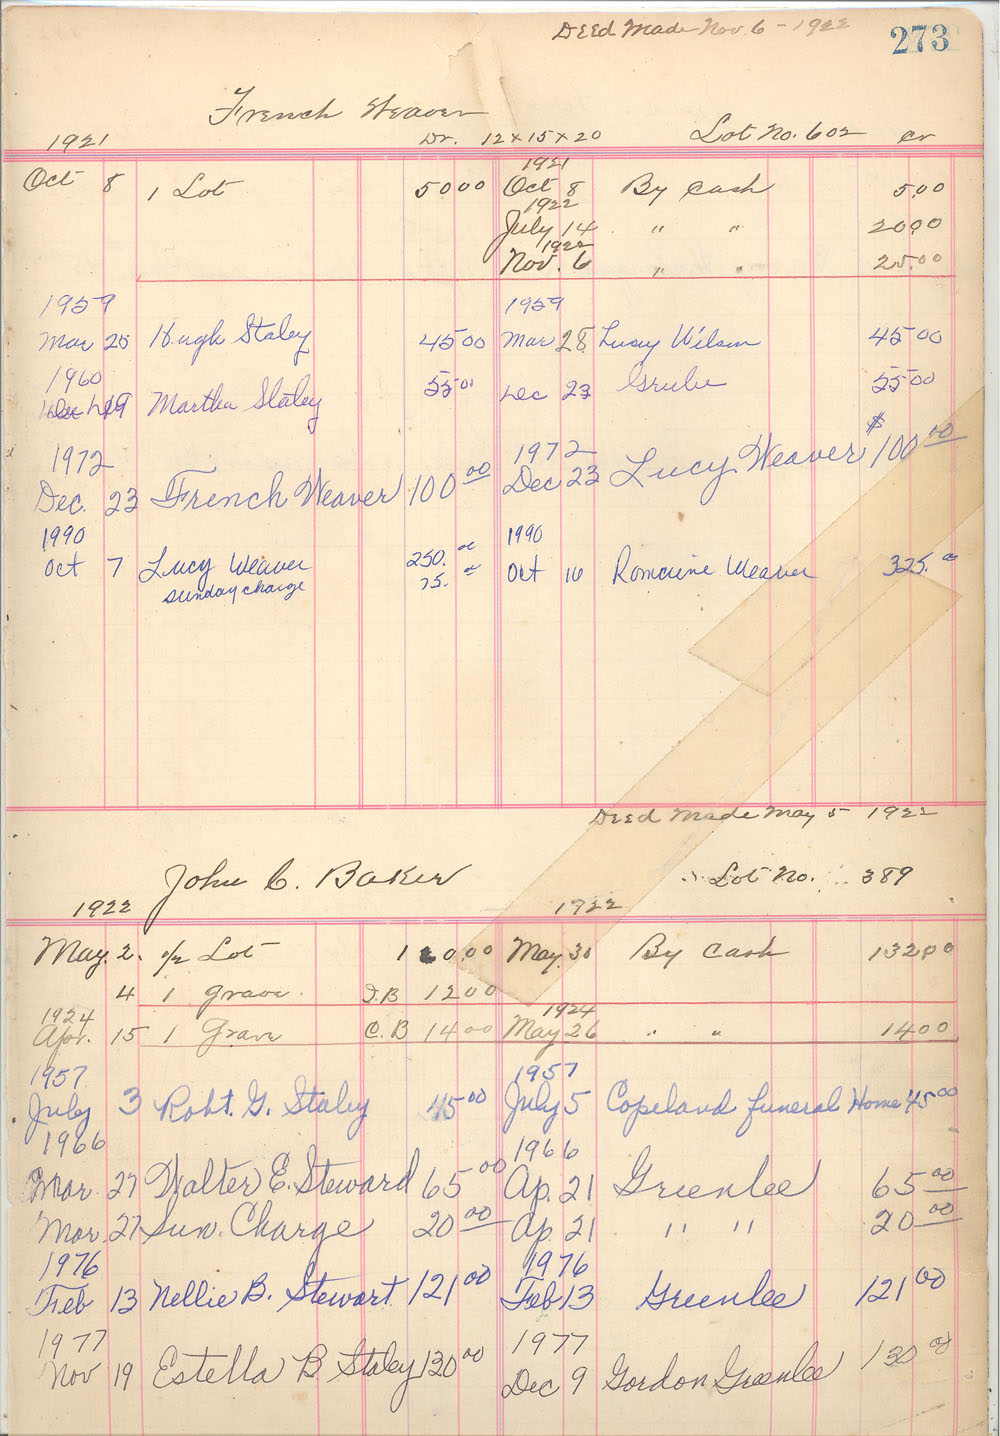 Deed Made Nov. 6 - 1922
273
French Weaver
1921 Dr. 12 x 15 x 20 Lot No. 602 Cr
1921
Oct 8 1 Lot 50 00 Oct 8 By Cash 5.00
1922
July 14 " " 20 00
1922
Nov. 6 " " 25.00
1959 1959
Mar 25 Hugh Staley 45 00 Mar 28 Lucy Wilson 45 00
1960
Dec 19 Martha Staley 55 00 Dec 23 Grube 55 00
1972 1972
Dec. 23 French Weaver 100 00 Dec 23 Lucy Weaver $100 00
1990 1990
Oct 7 Lucy Weaver 250. Oct 10 Romaine Weaver 325.
Sunday charge 75.
Deed Made May 5 1922
John C. Baker Lot No. 389
1922 1922
May 2. 1/2 Lot 120.00 May. 30 By Cash 132 00
4 1 grave. D.B 12 00
1924 1924
Apr. 15 1 Grave C.B 14 00 May 26 " " 14 00
1957 1957
July 3 Robt. G. Staley 45 00 July 5 Copeland funeral Home 45 00
1966 1966
Mar. 27 Walter E. Steward 65 00 Ap. 21 Greenlee 65 00
Mar. 27 Sun. Charge 20 00 Ap. 21 " " 20 00
1976 1976
Feb 13 Nellie B. Stewart 121 00 Feb 13 Greenlee 121 00
1977 1977
Nov 19 Estella B. Staley 130 00 Dec 9 Gordon Greenlee 130 00